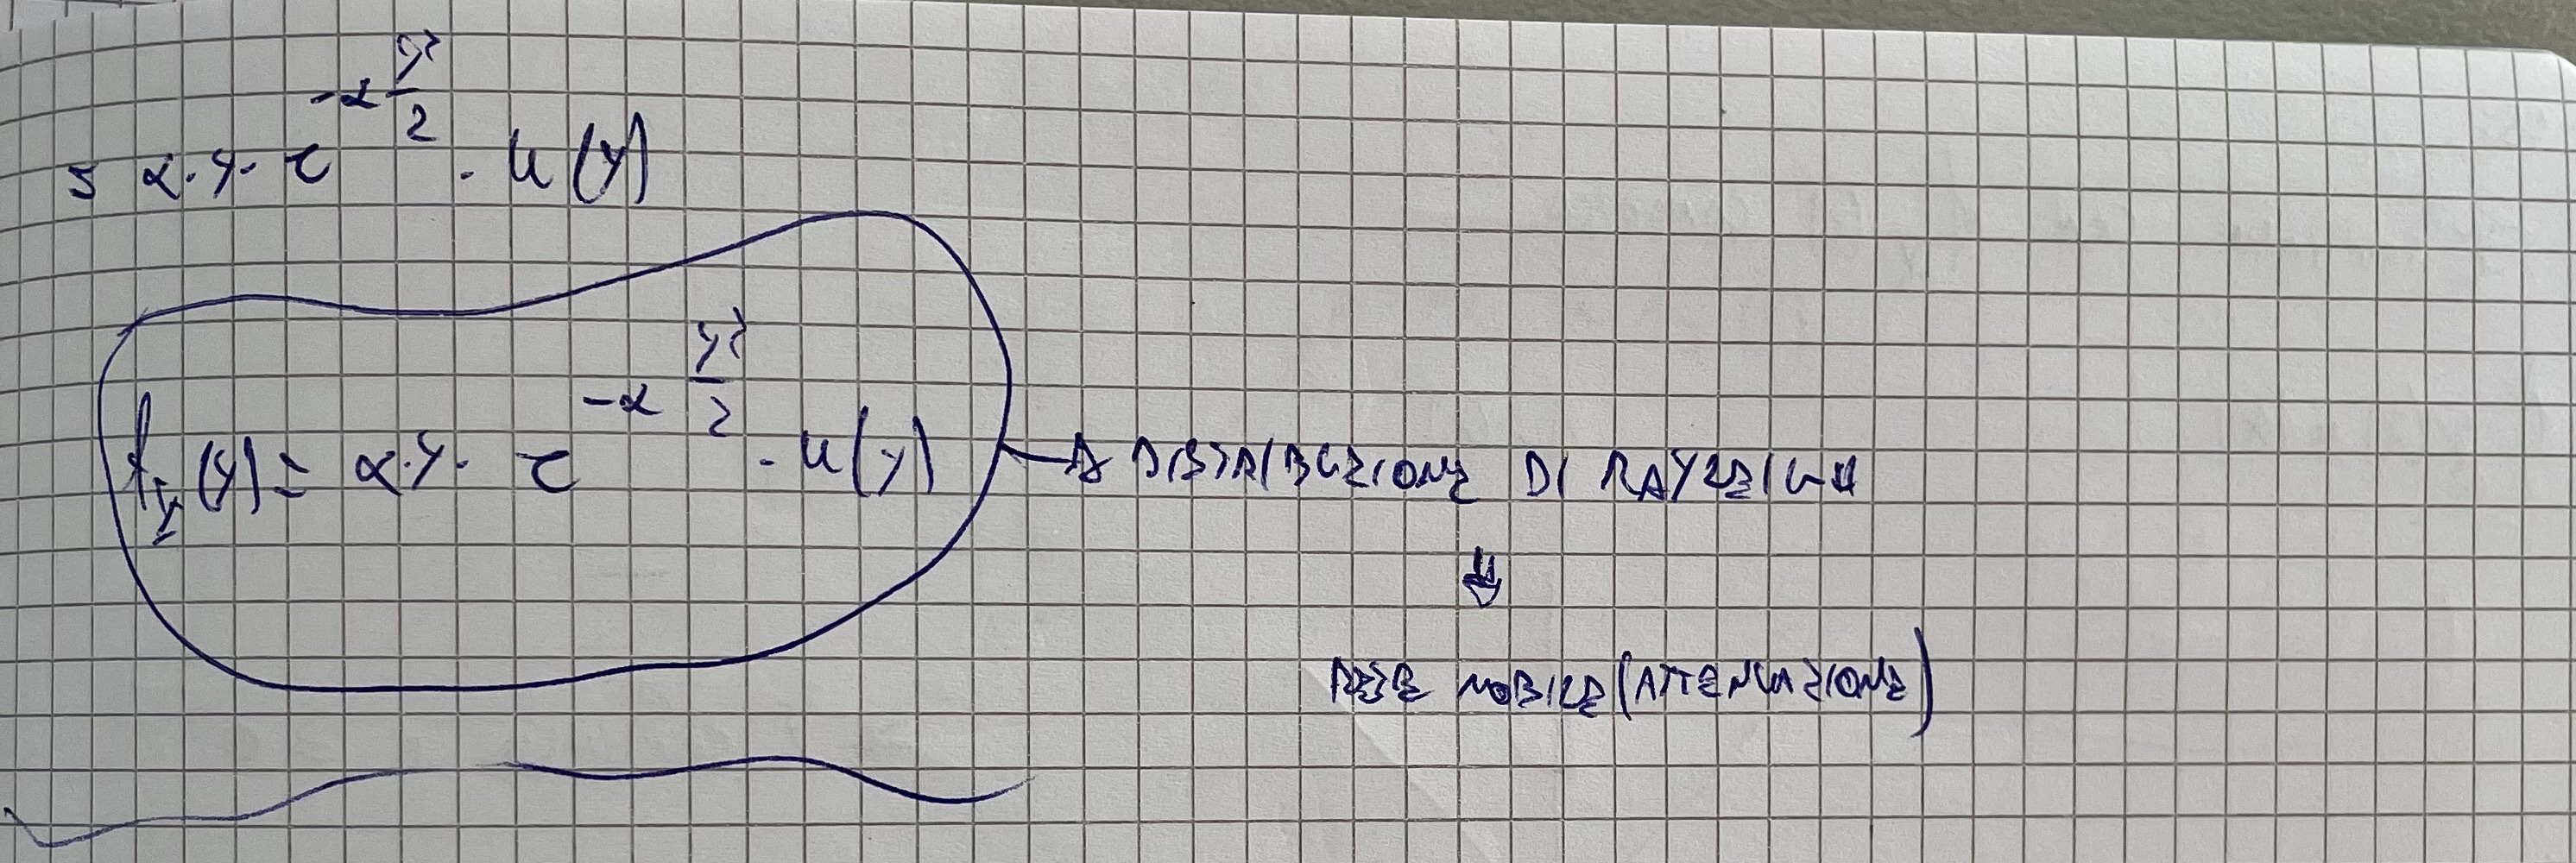 = α·y· e^{-α y²/2} · u(y)
f_Y(y) = α·y· e^{-α y²/2} · u(y) → DISTRIBUZIONE DI RAYLEIGH
⇓
RETE MOBILE (ATTENUAZIONE)